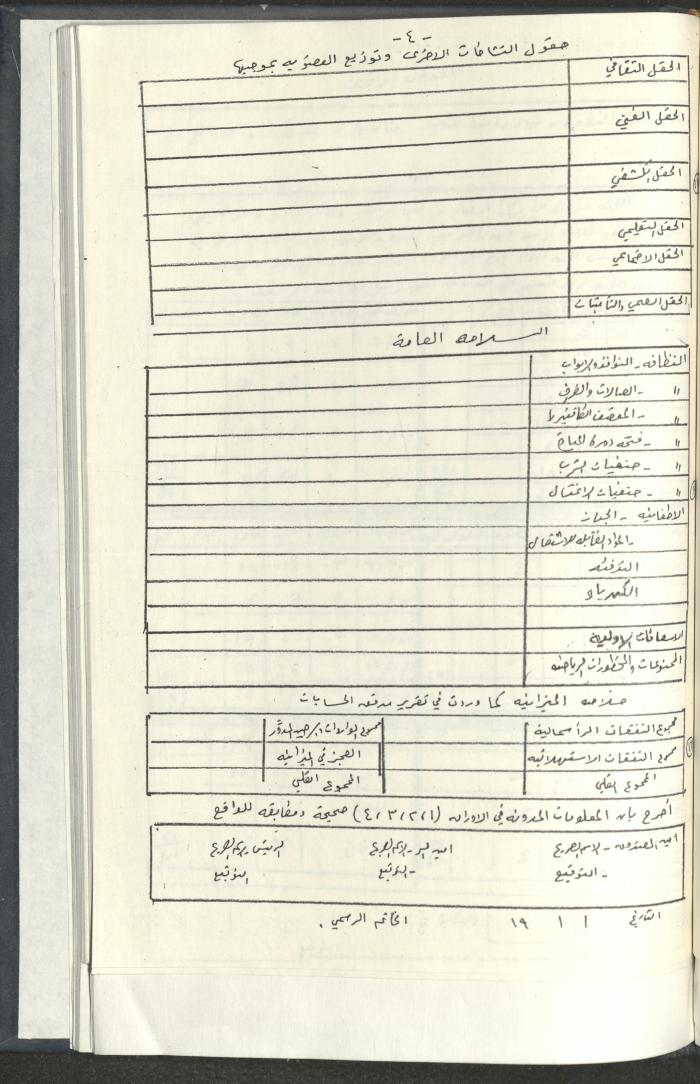 -٤-
حقول النشاطات الاخرى وتوزيع العضويه بموجبها
الحقل الثقافي
الحقل الفني
الحقل الكشفي
الحقل التعليمي
الحقل الاجتماعي
الحقل الصحي والتأمينات
السلامه العامة
النظافه - النوافذ والابواب
〃 - الصالات والغرف
〃 - المقصف الكافتيريا
〃 - فتحه دورة المياة
〃 - حنفيات الشرب
〃 - حنفيات الاغتسال
الاطفائيه - الجهاز
- المواد القابله للاشتعال
التدفئه
الكهرباء
الاسعافات الاولية
الممنوعات والمحظورات الرياضيه
خلاصه الميزانيه كما وردت في تقرير مدقق الحسابات
مجموع النفقات الرأسمالية مجموع الواردات + رصيد المدور
مجموع النفقات الاستهلاكيه العجز في الميزانيه
المجموع الكلي المجموع الكلي
أصرح بان المعلومات المدونه في الاوراق (٤،٣،٢،١) صحيحة ومطابقه للواقع
امين الصندوق - الاسم الصريح امين السر - الاسم الصريح الرئيس - الاسم الصريح
- التوقيع - التوقيع التوقيع
التاريخ / / ١٩ الخاتم الرسمي .